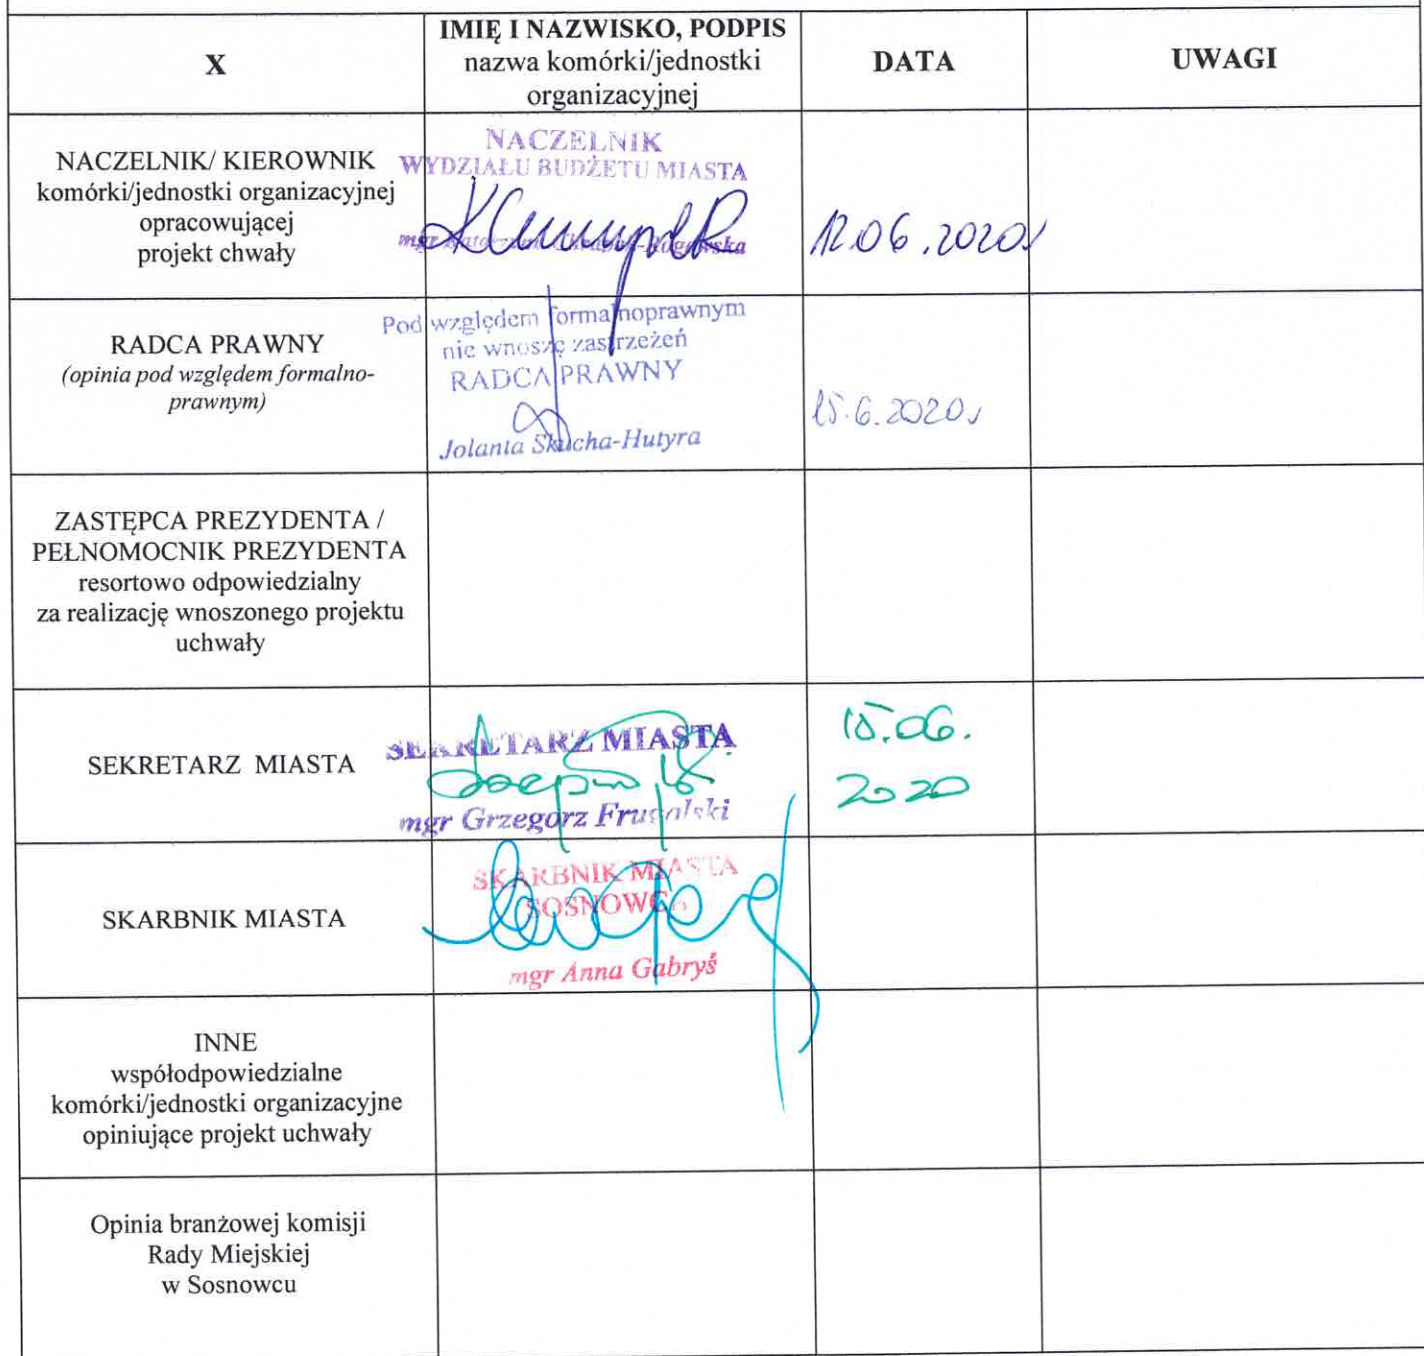 X
IMIĘ I NAZWISKO, PODPIS
nazwa komórki/jednostki
organizacyjnej
DATA
UWAGI
NACZELNIK/ KIEROWNIK
komórki/jednostki organizacyjnej
opracowującej
projekt chwały
NACZELNIK
WYDZIAŁU BUDŻETU MIASTA
mgr Katarzyna
12.06.2020r
RADCA PRAWNY
(opinia pod względem formalno-
prawnym)
Pod względem formalnoprawnym
nie wnoszę zastrzeżeń
RADCA PRAWNY
Jolanta Skucha-Hutyra
15.6.2020r
ZASTĘPCA PREZYDENTA /
PEŁNOMOCNIK PREZYDENTA
resortowo odpowiedzialny
za realizację wnoszonego projektu
uchwały
SEKRETARZ MIASTA
SEKRETARZ MIASTA
mgr Grzegorz
15.06.
2020
SKARBNIK MIASTA
SKARBNIK MIASTA
SOSNOWCA
mgr Anna Gabryś
INNE
współodpowiedzialne
komórki/jednostki organizacyjne
opiniujące projekt uchwały
Opinia branżowej komisji
Rady Miejskiej
w Sosnowcu